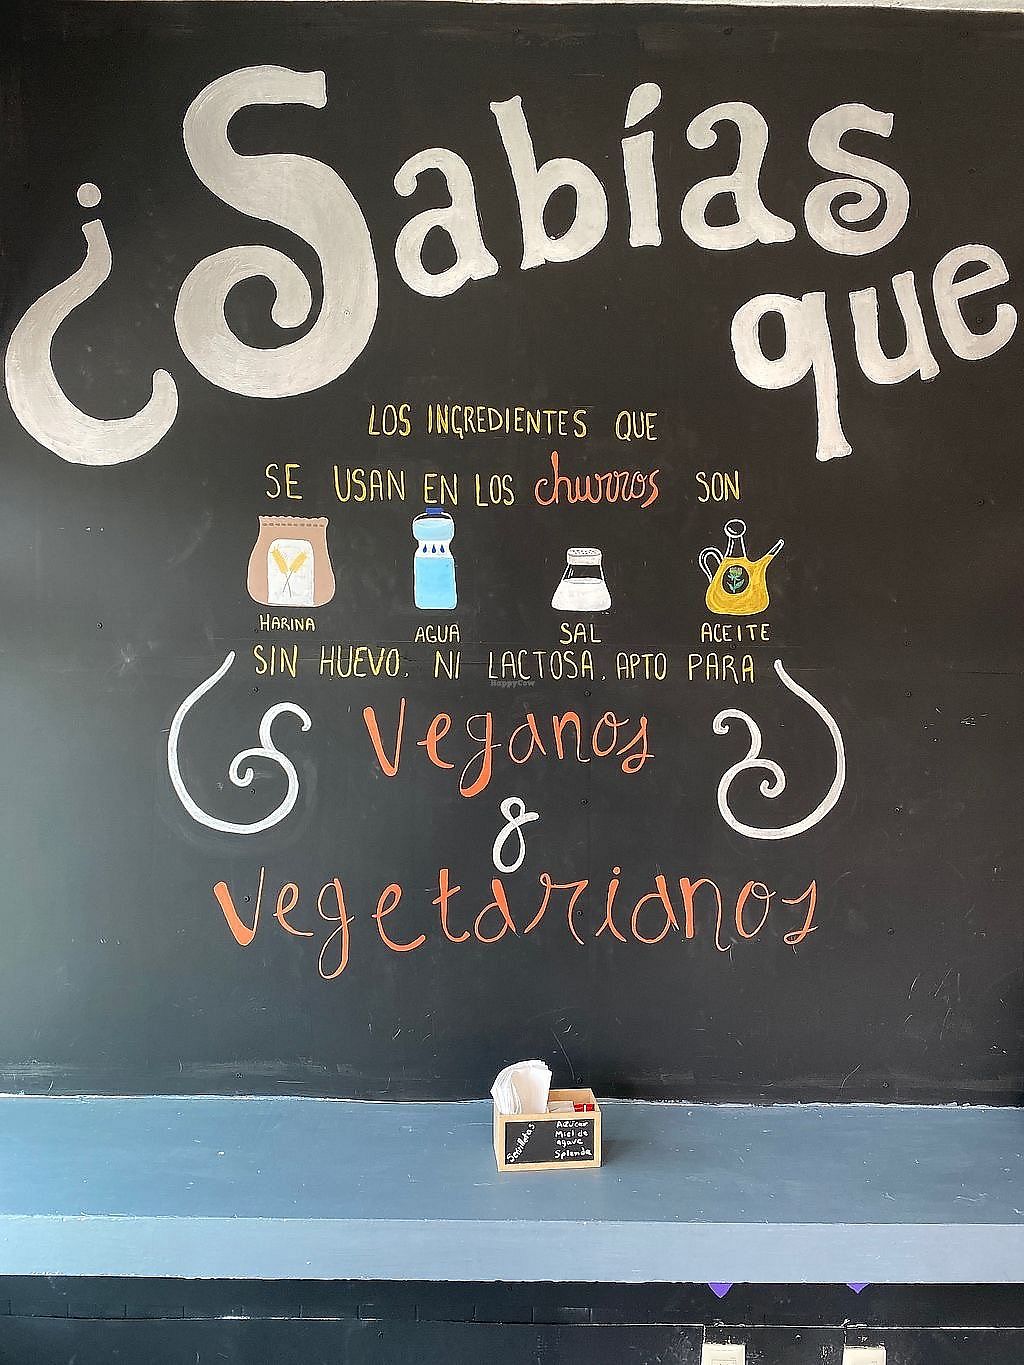 ¿Sabías
que
LOS INGREDIENTES QUE
SE USAN EN LOS churros SON
HARINA
AGUA
SAL
ACEITE
SIN HUEVO, NI LACTOSA, APTO PARA
HappyCow
Veganos
&
vegetarianos
Servilletas
Azúcar
Miel de
agave
Splenda